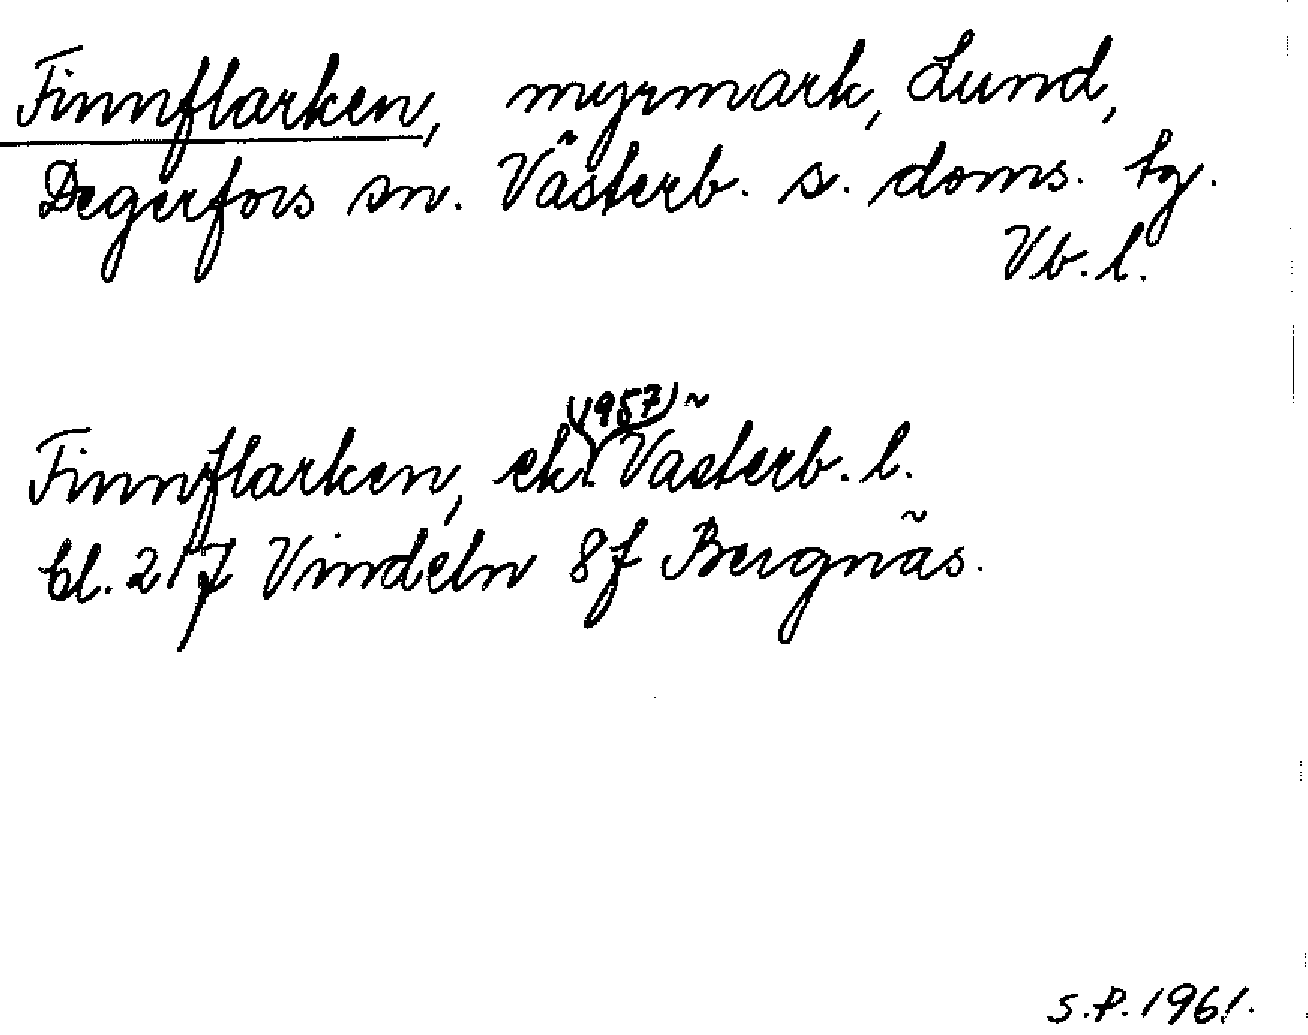 Finnflarken, myrmark, Lund,
Degerfors sn. Västerb. s. doms. tg.
Vb. l.
Finnflarken, ek. (1957) Västerb. l.
bl. 217 Vindeln 8f Bergnäs.
S.P. 1961.